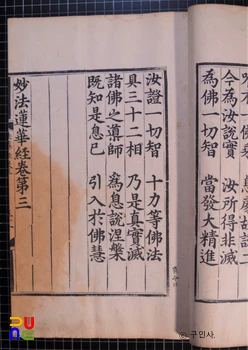 今為汝說實　汝所得非滅
為佛一切智　當發大精進
汝證一切智　十力等佛法
具三十二相　乃是真實滅
諸佛之導師　為息說涅槃
既知是息已　引入於佛慧
妙法蓮華經卷第三
ⓒ 구인사